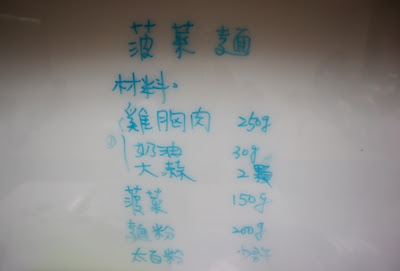 菠菜麵
材料。
雞胸肉 250g
奶油 30g
大蒜 2顆
菠菜 150g
麵粉 200g
太白粉